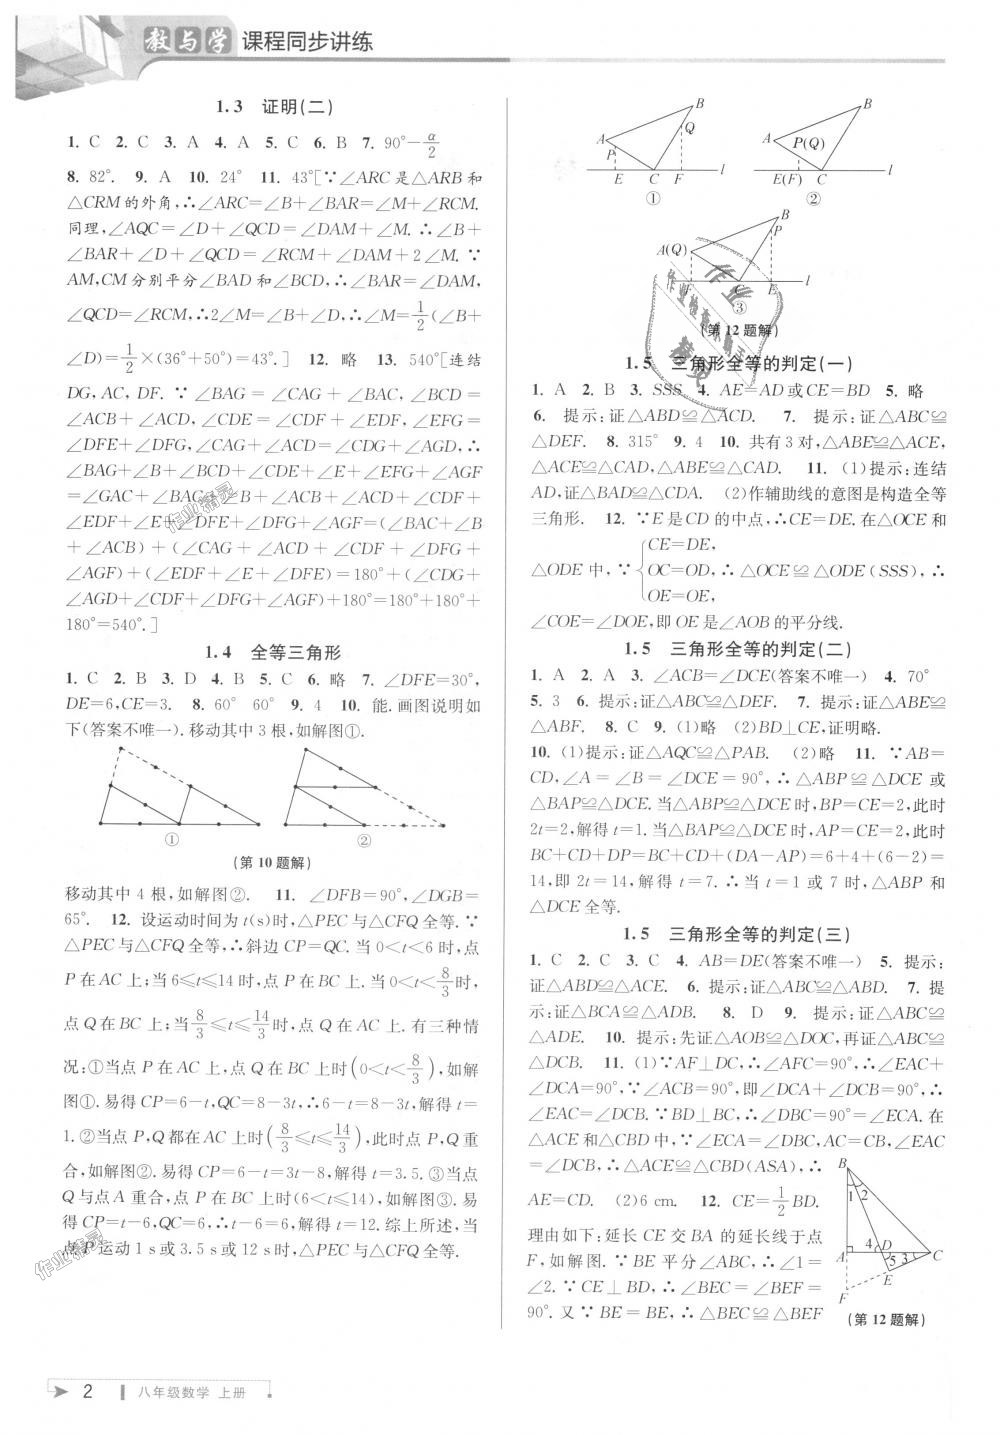 教与学 课程同步讲练
1.3 证明(二)
1. C 2. C 3. A 4. A 5. C 6. B 7. 90°-α/2
8. 82°. 9. A 10. 24° 11. 43°[∵∠ARC是△ARB和
△CRM的外角,∴∠ARC=∠B+∠BAR=∠M+∠RCM.
同理,∠AQC=∠D+∠QCD=∠DAM+∠M.∴∠B+
∠BAR+∠D+∠QCD=∠RCM+∠DAM+2∠M.∵
AM,CM分别平分∠BAD和∠BCD,∴∠BAR=∠DAM,
∠QCD=∠RCM,∴2∠M=∠B+∠D,∴∠M=1/2(∠B+
∠D)=1/2×(36°+50°)=43°.] 12. 略 13. 540°[连结
DG,AC,DF.∵∠BAG=∠CAG+∠BAC,∠BCD=
∠ACB+∠ACD,∠CDE=∠CDF+∠EDF,∠EFG=
∠DFE+∠DFG,∠CAG+∠ACD=∠CDG+∠AGD,∴
∠BAG+∠B+∠BCD+∠CDE+∠E+∠EFG+∠AGF
=∠GAC+∠BAC+∠B+∠ACB+∠ACD+∠CDF+
∠EDF+∠E+∠DFE+∠DFG+∠AGF=(∠BAC+∠B
+∠ACB)+(∠CAG+∠ACD+∠CDF+∠DFG+
∠AGF)+(∠EDF+∠E+∠DFE)=180°+(∠CDG+
∠AGD+∠CDF+∠DFG+∠AGF)+180°=180°+180°+
180°=540°.]
1.4 全等三角形
1. C 2. B 3. D 4. B 5. C 6. 略 7. ∠DFE=30°,
DE=6,CE=3. 8. 60° 60° 9. 4 10. 能.画图说明如
下(答案不唯一).移动其中3根,如解图①.
① ②
(第10题解)
移动其中4根,如解图②. 11. ∠DFB=90°,∠DGB=
65°. 12. 设运动时间为t(s)时,△PEC与△CFQ全等.∵
△PEC与△CFQ全等,∴斜边CP=QC.当0<t<6时,点
P在AC上;当6≤t≤14时,点P在BC上.当0<t<8/3时,
点Q在BC上;当8/3≤t≤14/3时,点Q在AC上.有三种情
况:①当点P在AC上,点Q在BC上时(0<t<8/3),如解
图①.易得CP=6-t,QC=8-3t,∴6-t=8-3t,解得t=
1.②当点P,Q都在AC上时(8/3≤t≤14/3),此时点P,Q重
合,如解图②.易得CP=6-t=3t-8,解得t=3.5.③当点
Q与点A重合,点P在BC上时(6<t≤14),如解图③.易
得CP=t-6,QC=6,∴t-6=6,解得t=12.综上所述,当
点P运动1 s或3.5 s或12 s时,△PEC与△CFQ全等.
B
A
Q
P
E C F l
①
B
A
P(Q)
E(F) C l
②
B
P
A(Q)
F C E l
③
(第12题解)
1.5 三角形全等的判定(一)
1. A 2. B 3. SSS 4. AE=AD或CE=BD 5. 略
6. 提示:证△ABD≌△ACD. 7. 提示:证△ABC≌
△DEF. 8. 315° 9. 4 10. 共有3对,△ABE≌△ACE,
△ACE≌△CAD,△ABE≌△CAD. 11. (1)提示:连结
AD,证△BAD≌△CDA. (2)作辅助线的意图是构造全等
三角形. 12. ∵E是CD的中点,∴CE=DE.在△OCE和
△ODE中,∵{CE=DE,
OC=OD,∴△OCE≌△ODE(SSS),∴
OE=OE,
∠COE=∠DOE,即OE是∠AOB的平分线.
1.5 三角形全等的判定(二)
1. A 2. A 3. ∠ACB=∠DCE(答案不唯一) 4. 70°
5. 3 6. 提示:证△ABC≌△DEF. 7. 提示:证△ABE≌
△ABF. 8. C 9. (1)略 (2)BD⊥CE,证明略.
10. (1)提示:证△AQC≌△PAB. (2)略 11. ∵AB=
CD,∠A=∠B=∠DCE=90°,∴△ABP≌△DCE或
△BAP≌△DCE.当△ABP≌△DCE时,BP=CE=2,此时
2t=2,解得t=1.当△BAP≌△DCE时,AP=CE=2,此时
BC+CD+DP=BC+CD+(DA-AP)=6+4+(6-2)=
14,即2t=14,解得t=7.∴当t=1或7时,△ABP和
△DCE全等.
1.5 三角形全等的判定(三)
1. C 2. C 3. C 4. AB=DE(答案不唯一) 5. 提示:
证△ABD≌△ACE. 6. 提示:证△ABC≌△ABD. 7. 提
示:证△BCA≌△ADB. 8. D 9. 提示:证△ABC≌
△ADE. 10. 提示:先证△AOB≌△DOC,再证△ABC≌
△DCB. 11. (1)∵AF⊥DC,∴∠AFC=90°,∴∠EAC+
∠DCA=90°,∵∠ACB=90°,即∠DCA+∠DCB=90°,∴
∠EAC=∠DCB.∵BD⊥BC,∴∠DBC=90°=∠ECA.在
△ACE和△CBD中,∵∠ECA=∠DBC,AC=CB,∠EAC
=∠DCB,∴△ACE≌△CBD(ASA),∴
AE=CD. (2)6 cm. 12. CE=1/2BD.
理由如下:延长CE交BA的延长线于点
F,如解图.∵BE平分∠ABC,∴∠1=
∠2.∵CE⊥BD,∴∠BEC=∠BEF=
90°.又∵BE=BE,∴△BEC≌△BEF
B
1 2
4 D
A 5 3 C
E
F
(第12题解)
2 八年级数学 上册
作业精灵
作业精灵